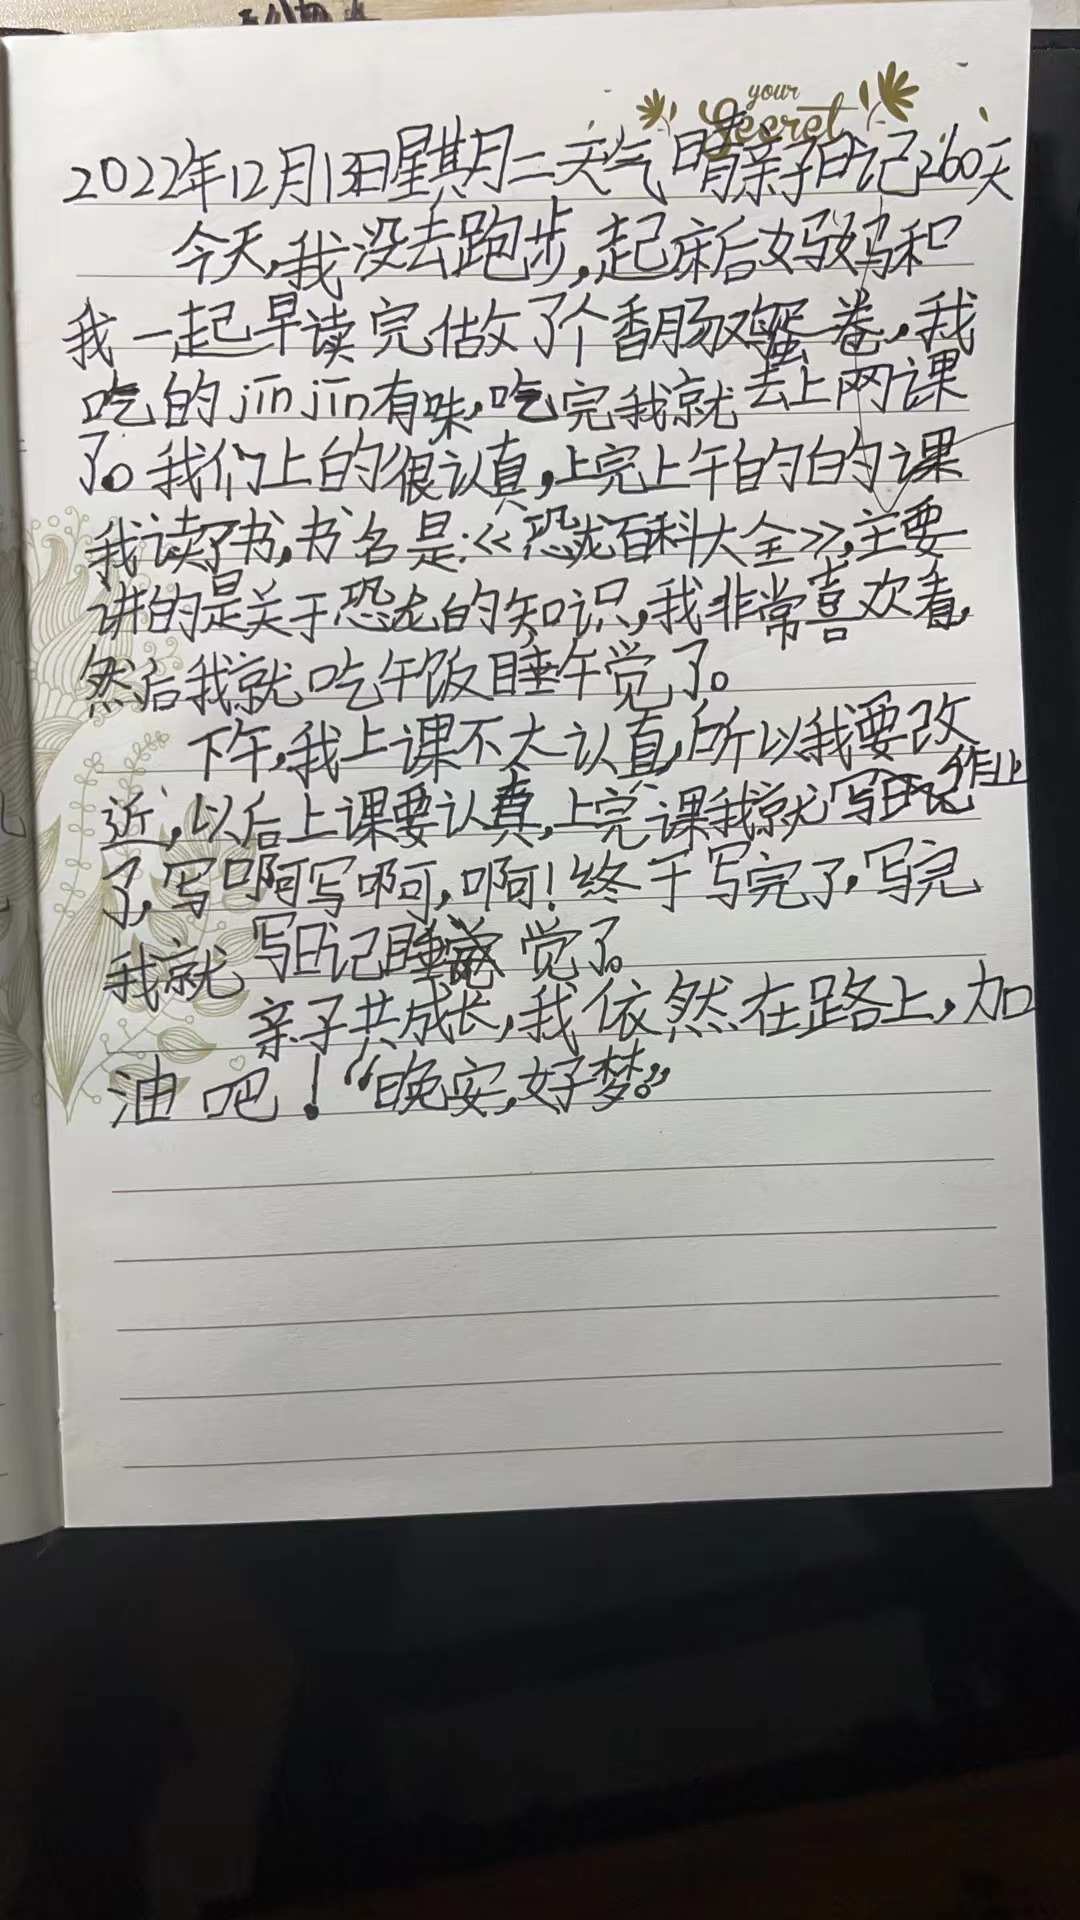 your
Secret
2022年12月13日星期二天气晴亲子日记260天
今天,我没去跑步,起床后妈妈和
我一起早读完,做了个香肠鸡蛋卷,我
吃的jīn jīn有味,吃完我就去上网课
了。我们上的很认真,上完上午的的课
我读了书,书名是:《恐龙百科大全》,主要
讲的是关于恐龙的知识,我非常喜欢看,
然后我就吃午饭睡午觉了。
下午,我上课不太认真,所以我要改
近,以后上课要认真,上完课我就写作业
了,写啊写啊,啊!终于写完了,写完
我就写日记睡觉了。
亲子共成长,我依然在路上,加
油吧!“晚安,好梦。”